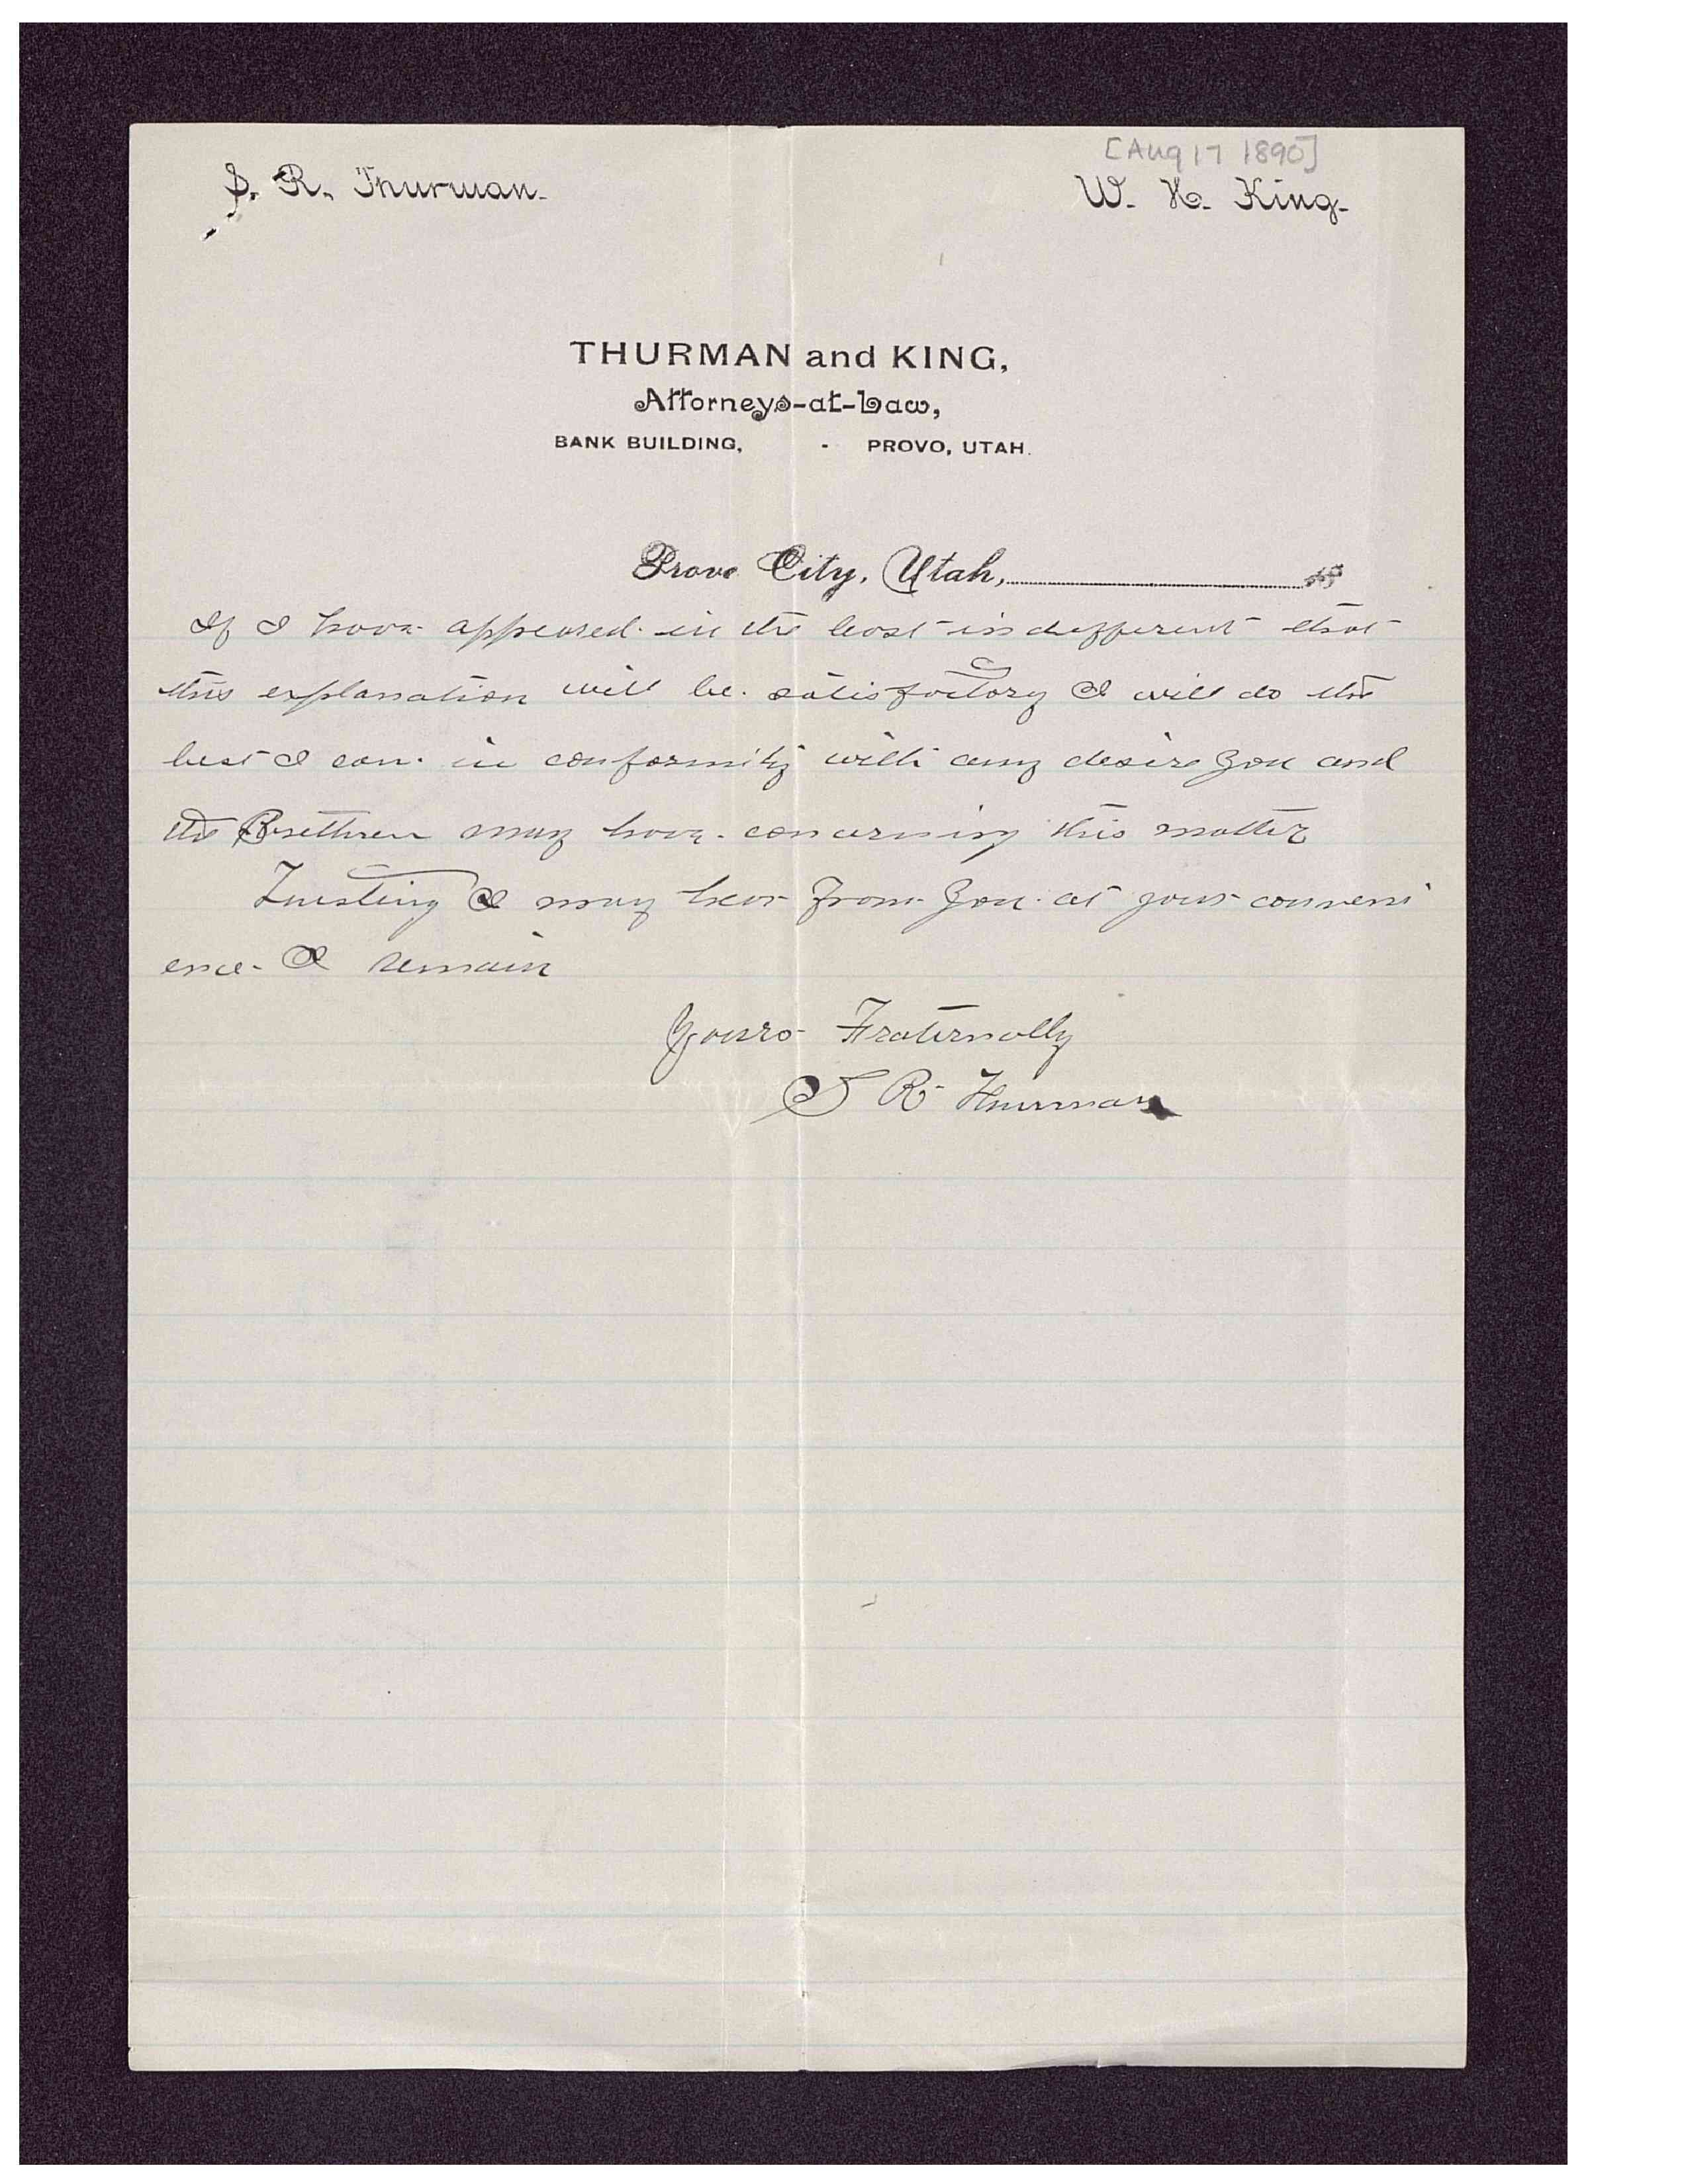 [Aug 17 1890]
S. R. Thurman.
W. H. King.
THURMAN and KING,
Attorneys-at-Law,
BANK BUILDING, - PROVO, UTAH.
Provo City, Utah, 18
If I have appeared in the least indifferent that
this explanation will be satisfactory I will do the
best I can in conformity with any desire you and
the Brethren may have concerning this matter
Trusting I may hear from you at your conveni
ence I remain
Yours Fraternally
S R Thurman